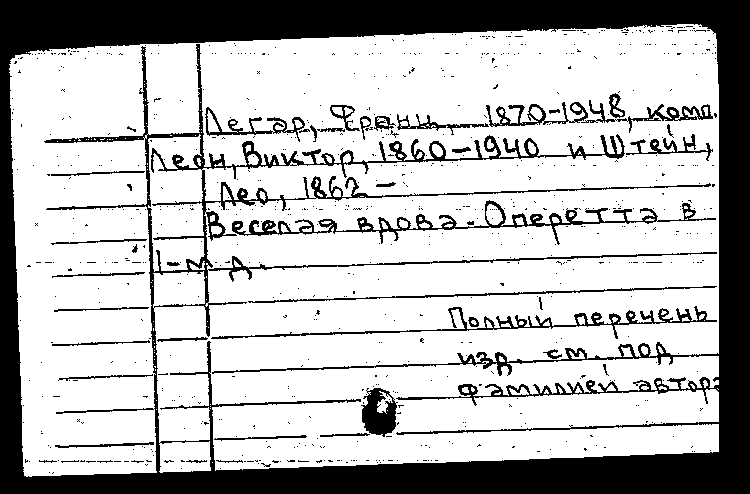 Легар, Франц, 1870-1948, комп.
Леон, Виктор, 1860-1940 и Штейн,
Лео, 1862-
Веселая вдова. Оперетта в
1-м д.
Полный перечень
изд. см. под
фамилией автора